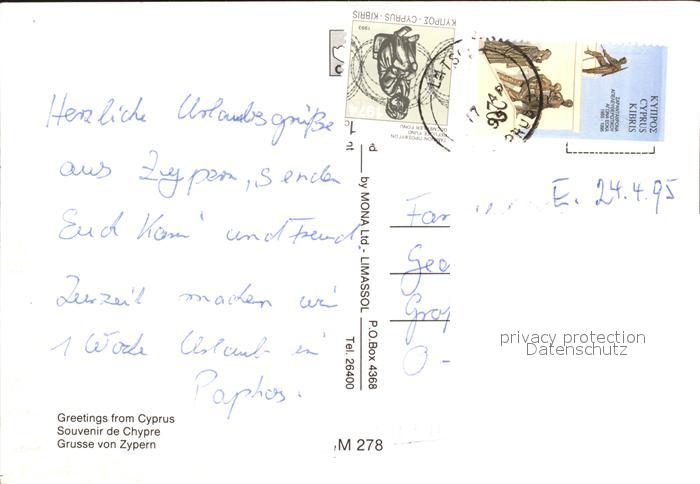 Herzliche Urlaubsgrüße
aus Zypern, senden
Euch Karin und Freund
Zurzeit machen wir
1 Woche Urlaub in
Paphos.
Greetings from Cyprus
Souvenir de Chypre
Grusse von Zypern
by MONA Ltd - LIMASSOL P.O.Box 4368
Tel. 26400
M 278
ΚΥΠΡΟΣ - CYPRUS - KIBRIS
1993
ΚΥΠΡΟΣ
CYPRUS
KIBRIS
E. 24.4.95
Fam
Geo
O -
privacy protection
Datenschutz